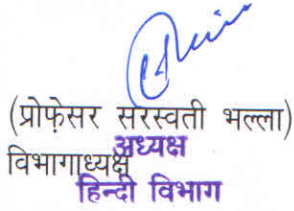 (प्रोफ़ेसर सरस्वती भल्ला)
विभागाध्यक्ष
अध्यक्ष
हिन्दी विभाग